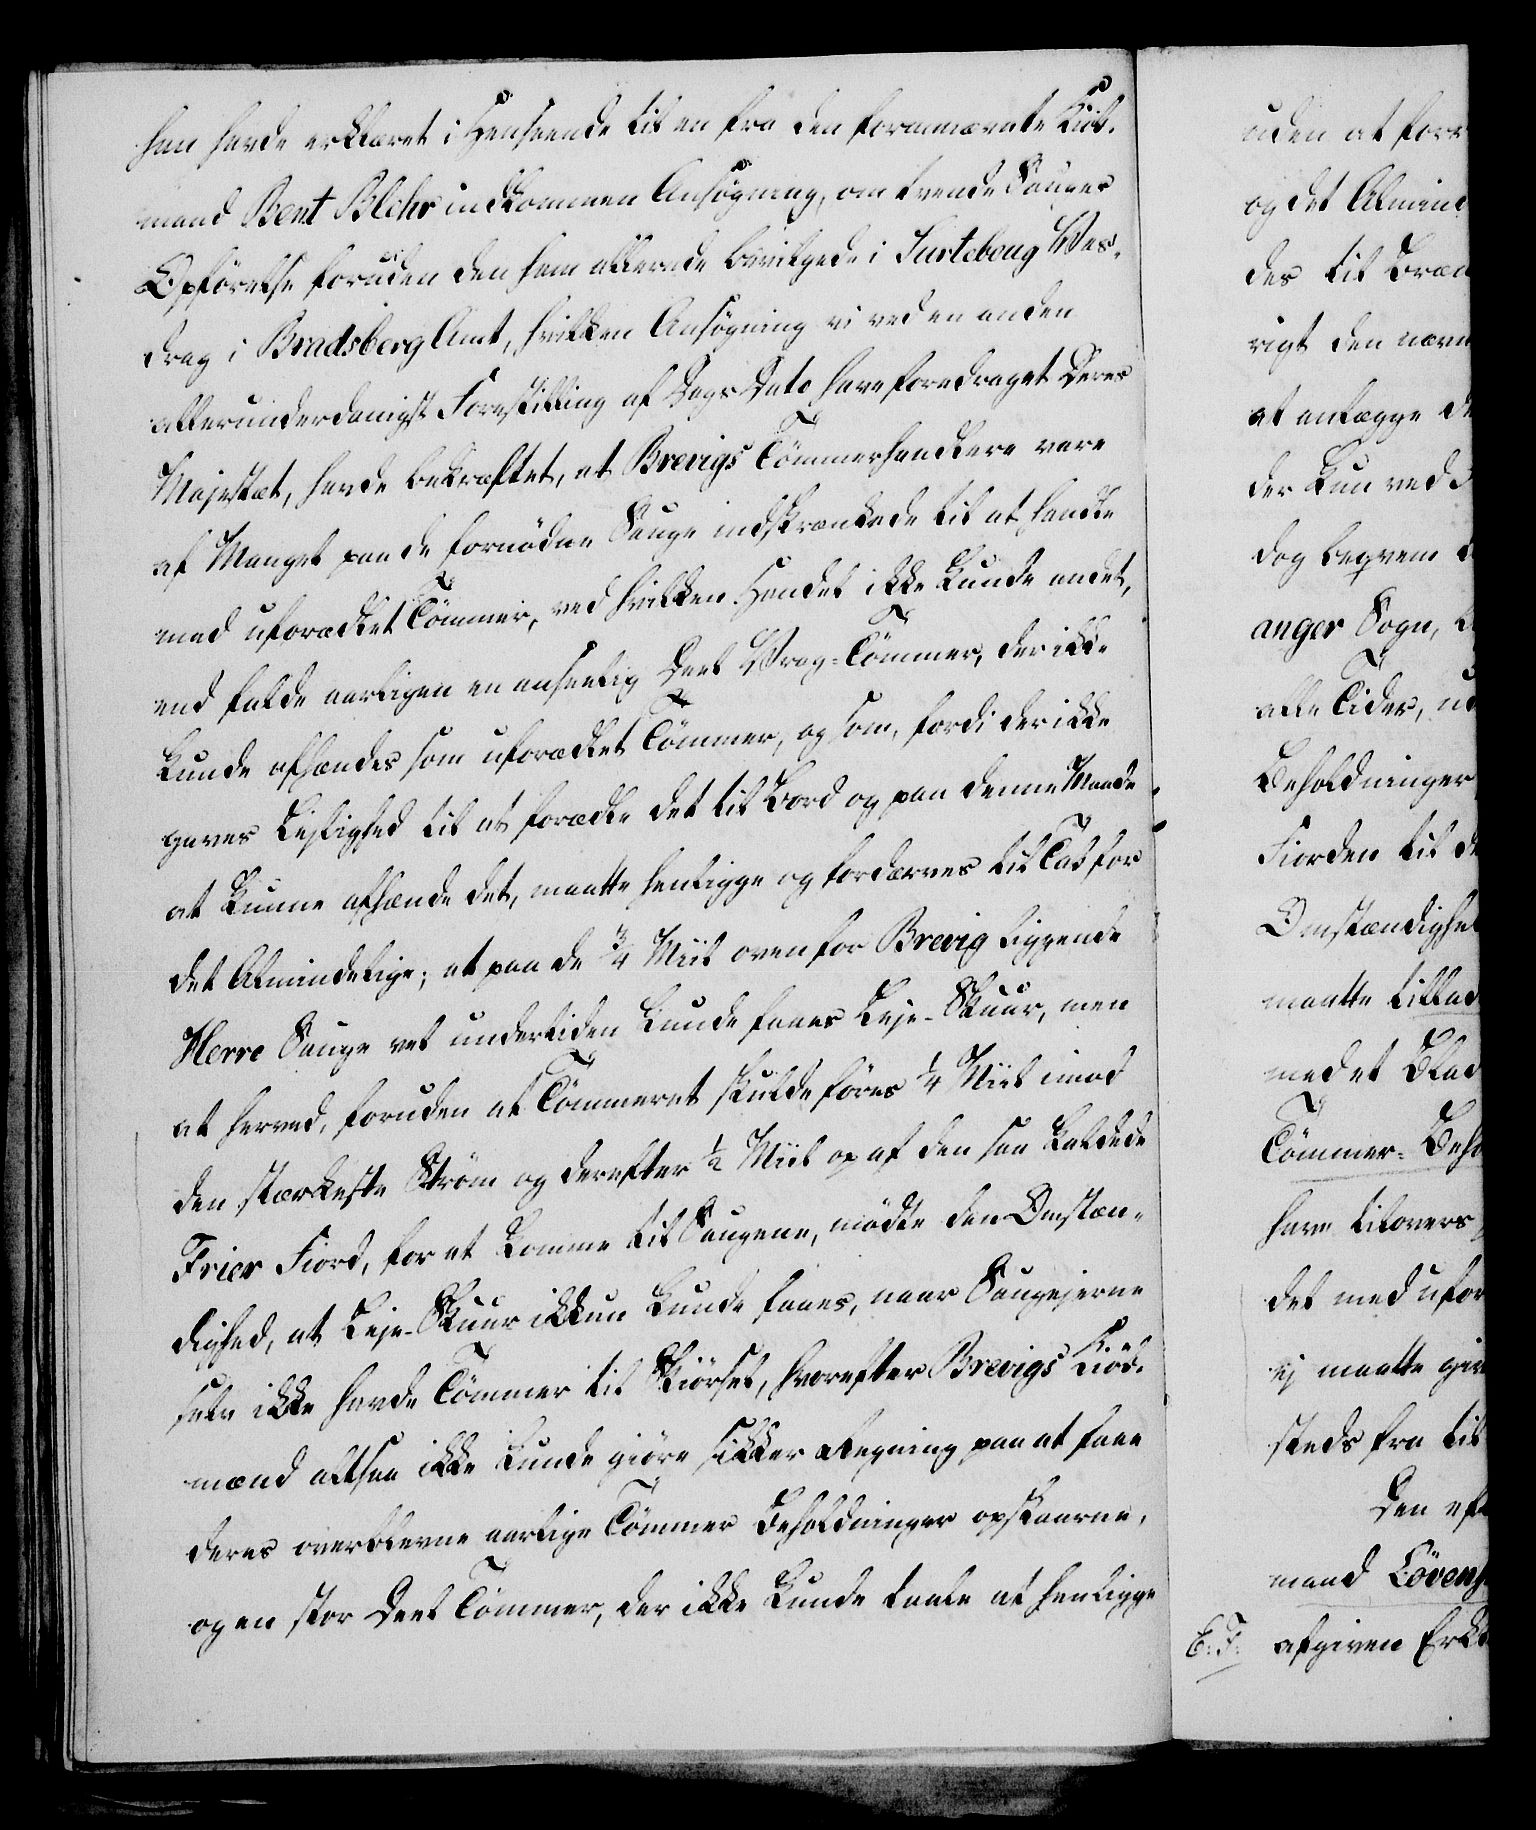 han havde erklæret i Henseende til en fra den formnævnte Kiöb-
mand Bent Blehr indkommen Ansøgning, om tvende Sauges
Opförelse foruden den ham allerede bevilgede i Surteboug Vas-
drag i Bradsberg Amt, hvilken Ansøgning vi ved en anden
allerunderdanigst Forestilling af Dags Dato have foredraget Deres
Majestæt, havde bekræftet, at Brevigs Tömmerhandlere vare
af Mangel paa de fornødne Sauge indskrænkede til at handle
med uforædlet Tömmer, ved hvilken Handel ikke kunde andet,
end falde aarligen en anseelig Deel Vrag-Tömmer, der ikke
kunde afhændes som uforædlet Tömmer, og som, fordi der ikke
gaves Leilighed til at forædle det til Bord og paa denne Maade
at kunne afhænde det, maatte henligge og fordærves til Tab for
det Almindelige; at paa de 3/4 Miil ovenfor Brevig liggende
Herre Sauge vel undertiden kunde faaes Leje-Skuur, men
at herved, foruden at Tömmeret skulde föres 1/4 Miil imod
den stærkeste Ström og derefter 1/2 Miil op af den saa kaldede
Frier Fiord, for at komme til Saugene, mödte den Omstæn-
dighed, at Leje-Skuur ikkun kunde faaes, naar Saugejerne
selv ikke havde Tömmer til Skiörsel, hvorefter Brevigs Kiöb-
mænd altsaa ikke kunde giöre sikker Regning paa at faae
deres overblevne aarlige Tömmer Beholdninger opskaarne,
og en stor Deel Tömmer, der ikke kunde taale at henligge
uden at forr
og det Almind
des til Bræn
rigt den nævn
at anlægge de
der kun ved
dog beqvem
anger Sogn,
alle Tider, ud
Beholdninger
Fiorden til de
Omstændighed
maatte tillad
med et Blad
Tömmer-Beho
have tilovers
det med ufor
ej maatte giv
steds fra til
Den eft
mand Lövens
E. F. afgiven Erkl